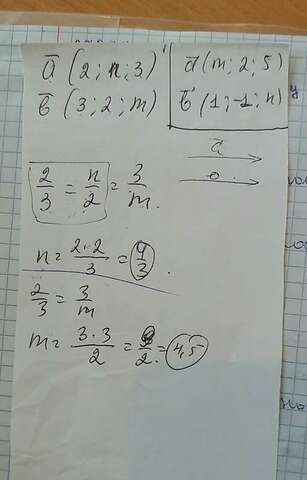 a̅ (2; n; 3)
в̅ (3; 2; m)
a̅ (m; 2; 5)
в̅ (1; -1; n)
a̅
2/3 = n/2 = 3/m
n = 2·2/3 = 4/3.
2/3 = 3/m
m = 3·3/2 = 9/2 = 4,5